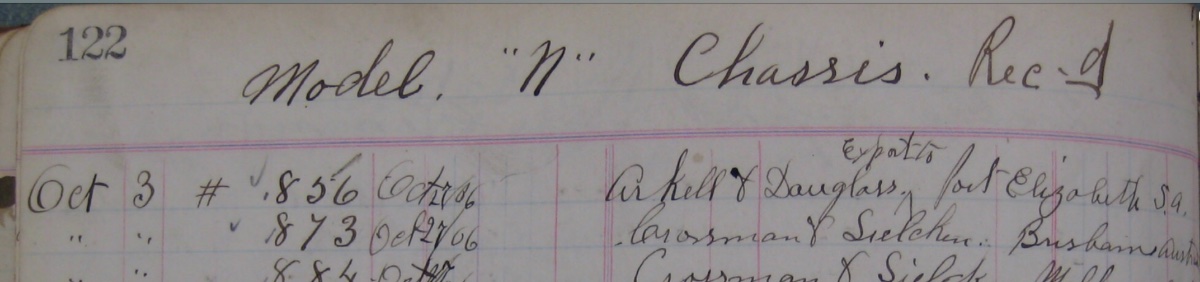 122
Model. "N" Chassis. Rec-d
Export to
Oct 3 # 856 Oct 27/06 Arkell & Douglass, Port Elizabeth S.A.
" " 873 Oct 27/06 Crossman & Sielcken. Brisbane Austr
" " 884 Oct 27 Crossman & Sielck